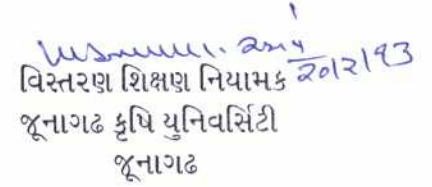 ૨૦/૨/૧૩
વિસ્તરણ શિક્ષણ નિયામક
જૂનાગઢ કૃષિ યુનિવર્સિટી
જૂનાગઢ